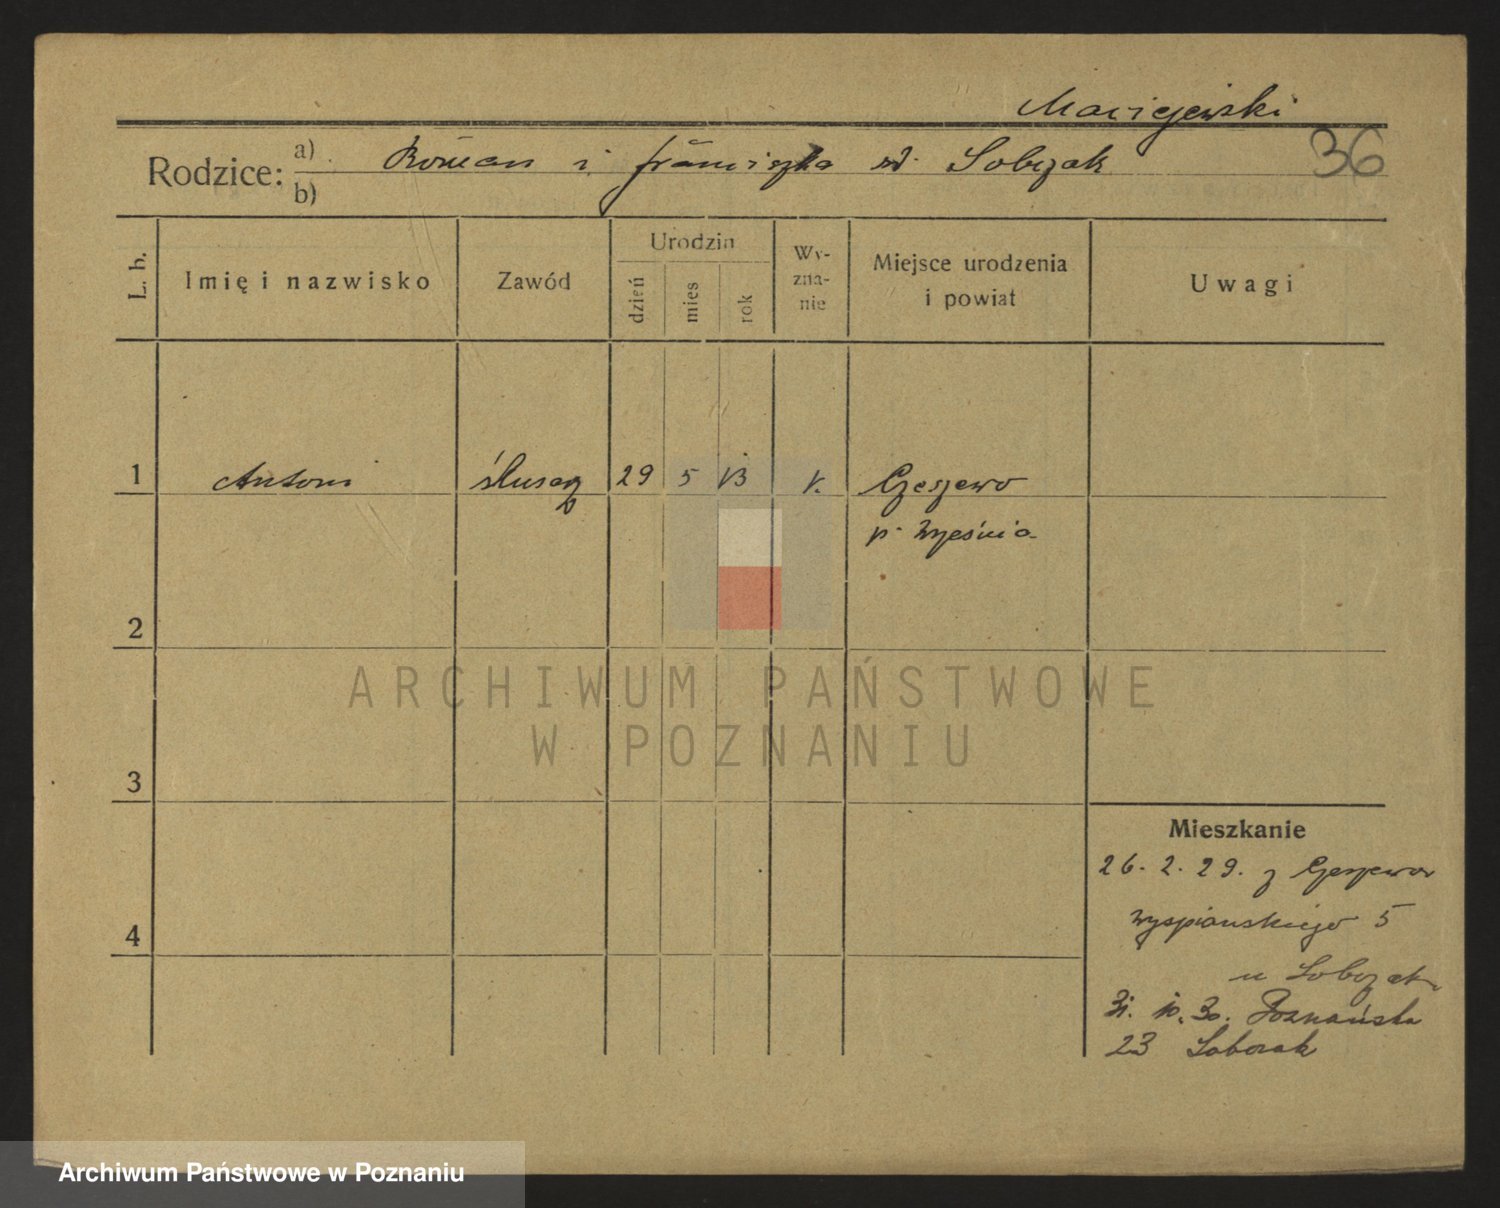 Maciejewski
36
Rodzice: a) Roman i Franciszka zd. Sobczak
b)
L. b.
Imię i nazwisko
Zawód
Urodzin
dzień
mies
rok
Wy-
zna-
nie
Miejsce urodzenia
i powiat
Uwagi
1 Antoni ślusarz 29 5 13 k. Czeszewo
p. Września
2
3
4
ARCHIWUM PAŃSTWOWE
W POZNANIU
Mieszkanie
26. 2. 29. z Czeszewa
Wyspiańskiego 5
u Sobczak
31. 10. 30. Poznańska
23 Sobczak
Archiwum Państwowe w Poznaniu